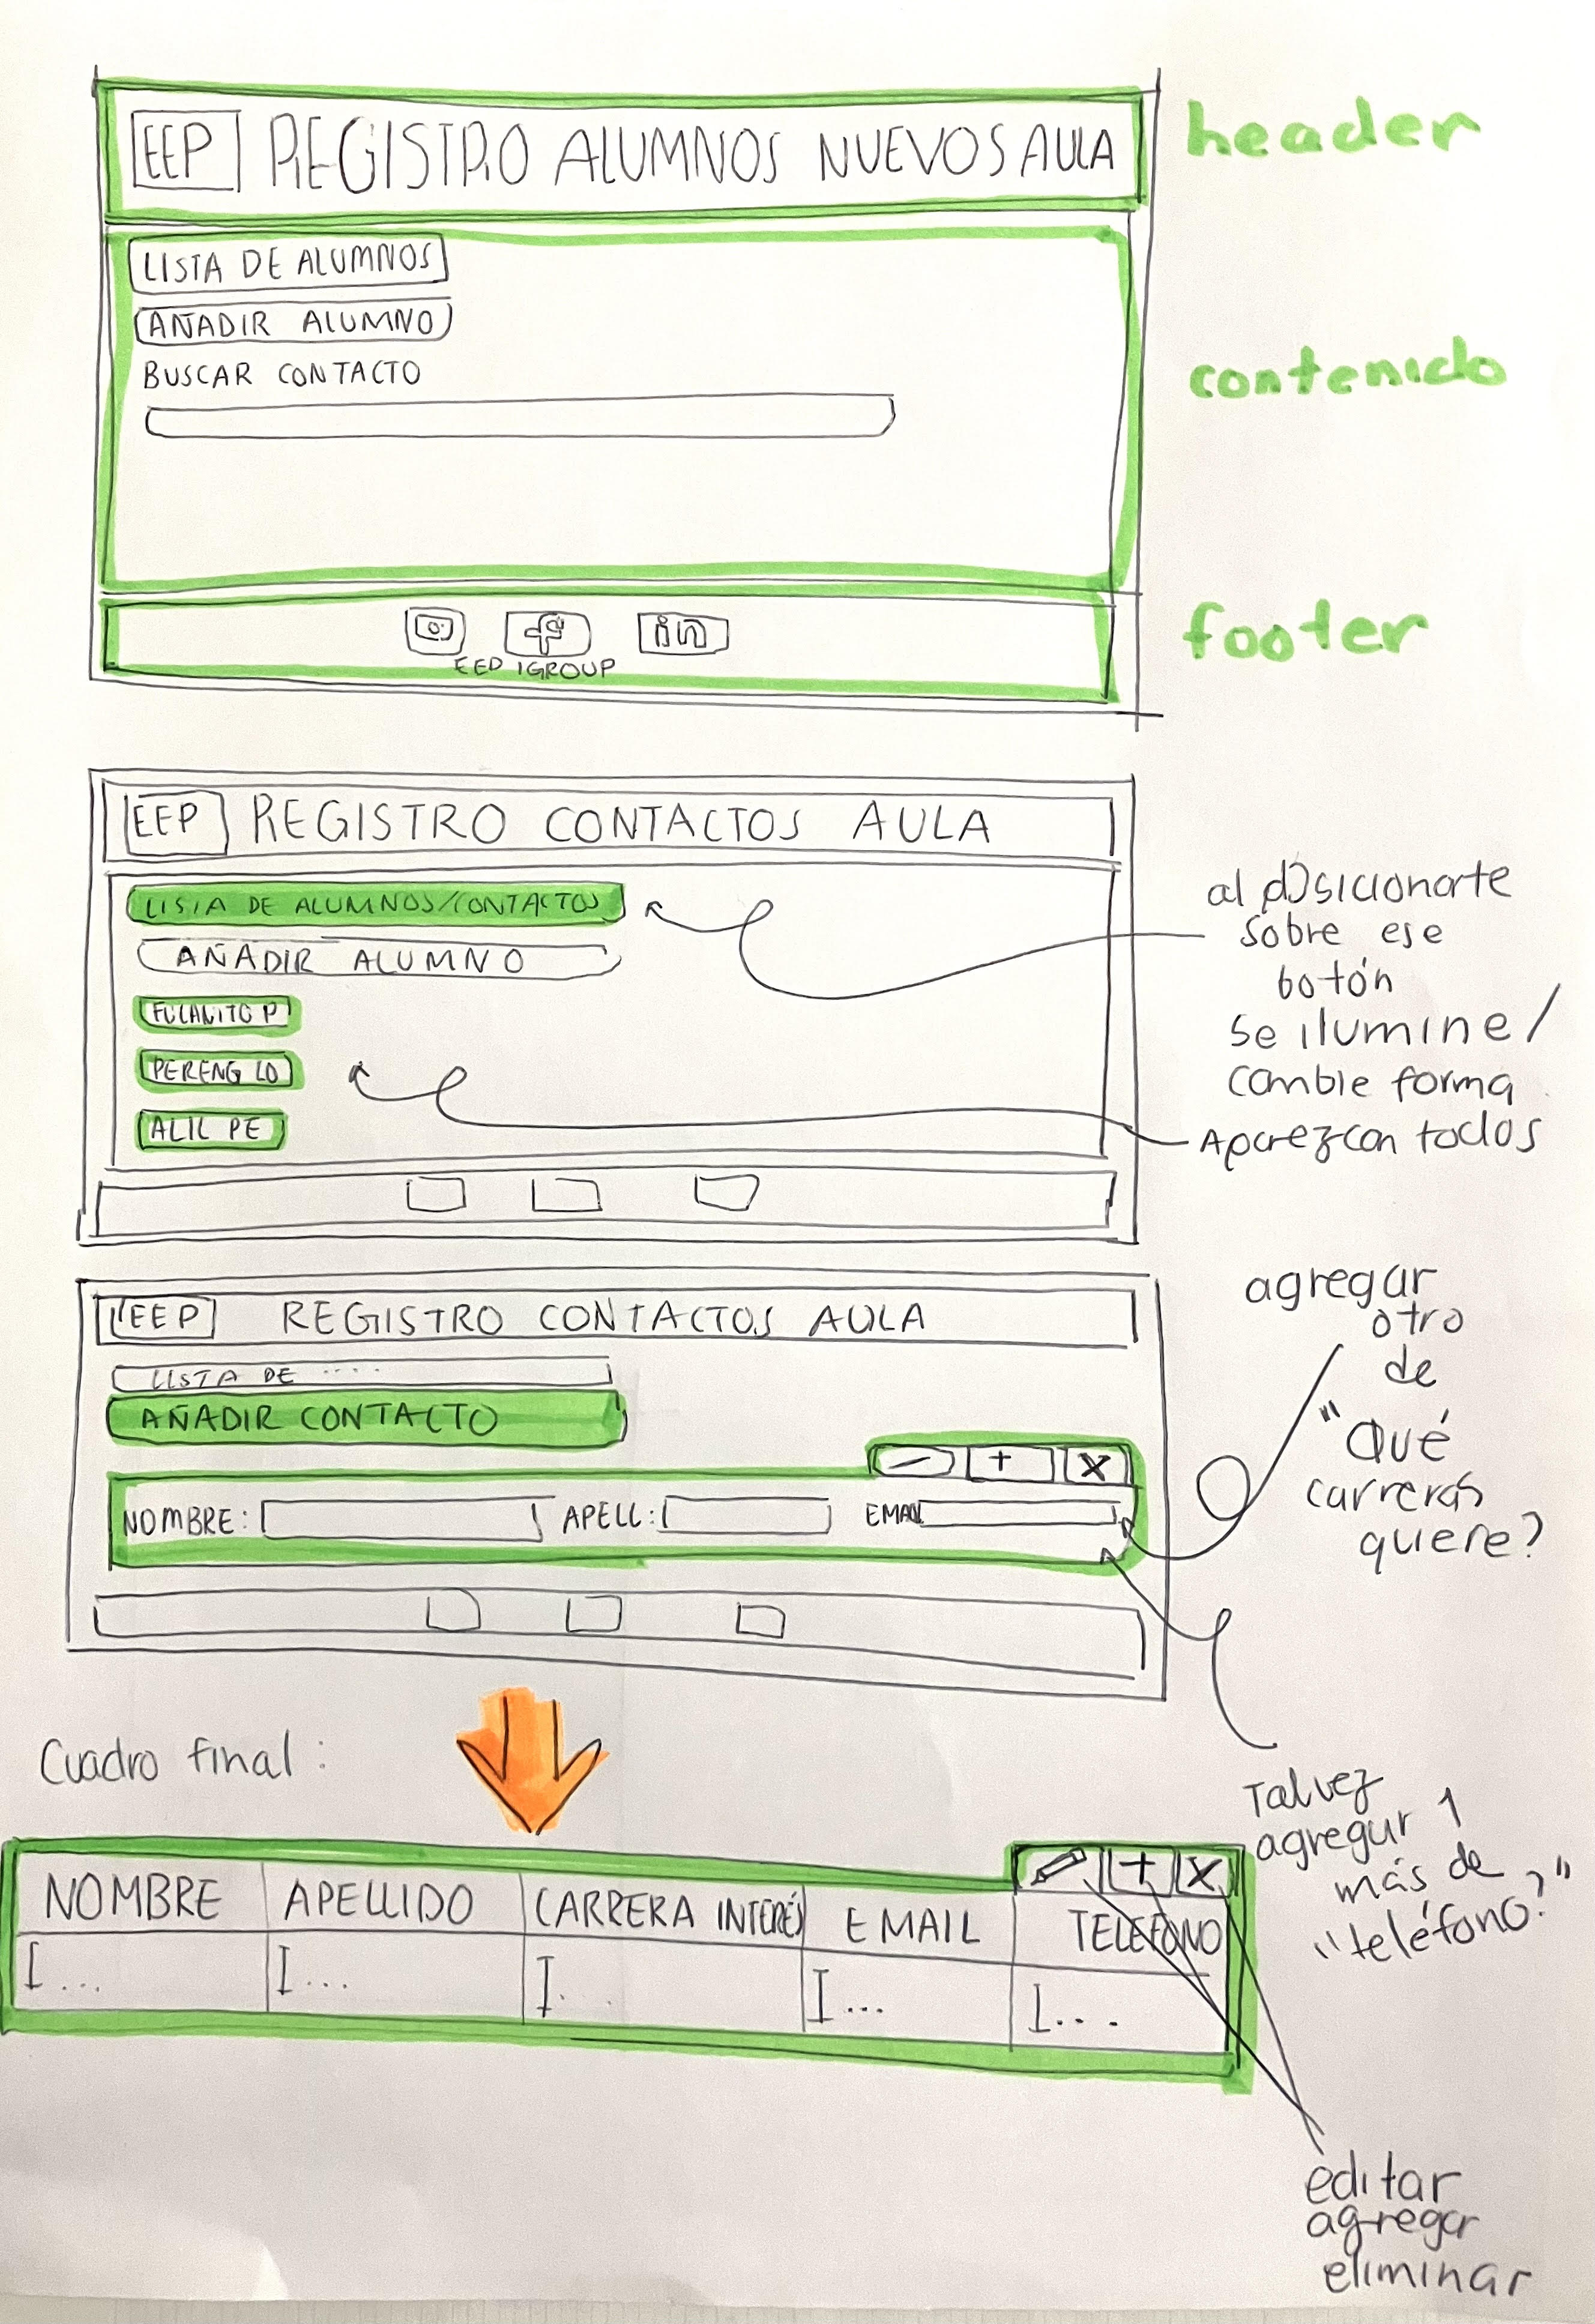 EEP REGISTRO ALUMNOS NUEVOS AULA
header
LISTA DE ALUMNOS
AÑADIR ALUMNO
BUSCAR CONTACTO
contenido
f in
footer
EED IGROUP
EEP REGISTRO CONTACTOS AULA
LISTA DE ALUMNOS/CONTACTOS
AÑADIR ALUMNO
FULANITO P
PERENG LO
ALIL PE
al posicionarte
sobre ese
botón
se ilumine/
cambie forma
Aparezcan todos
EEP REGISTRO CONTACTOS AULA
LISTA DE ....
AÑADIR CONTACTO
- + X
NOMBRE: APELL: EMAIL
agregar
otro
de
"Qué
carreras
quiere?
Cuadro final:
Talvez
agregar 1
más de
"teléfono?"
+ X
NOMBRE APELLIDO CARRERA INTERÉS EMAIL TELEFONO
I... I... I... I... I...
editar
agregar
eliminar